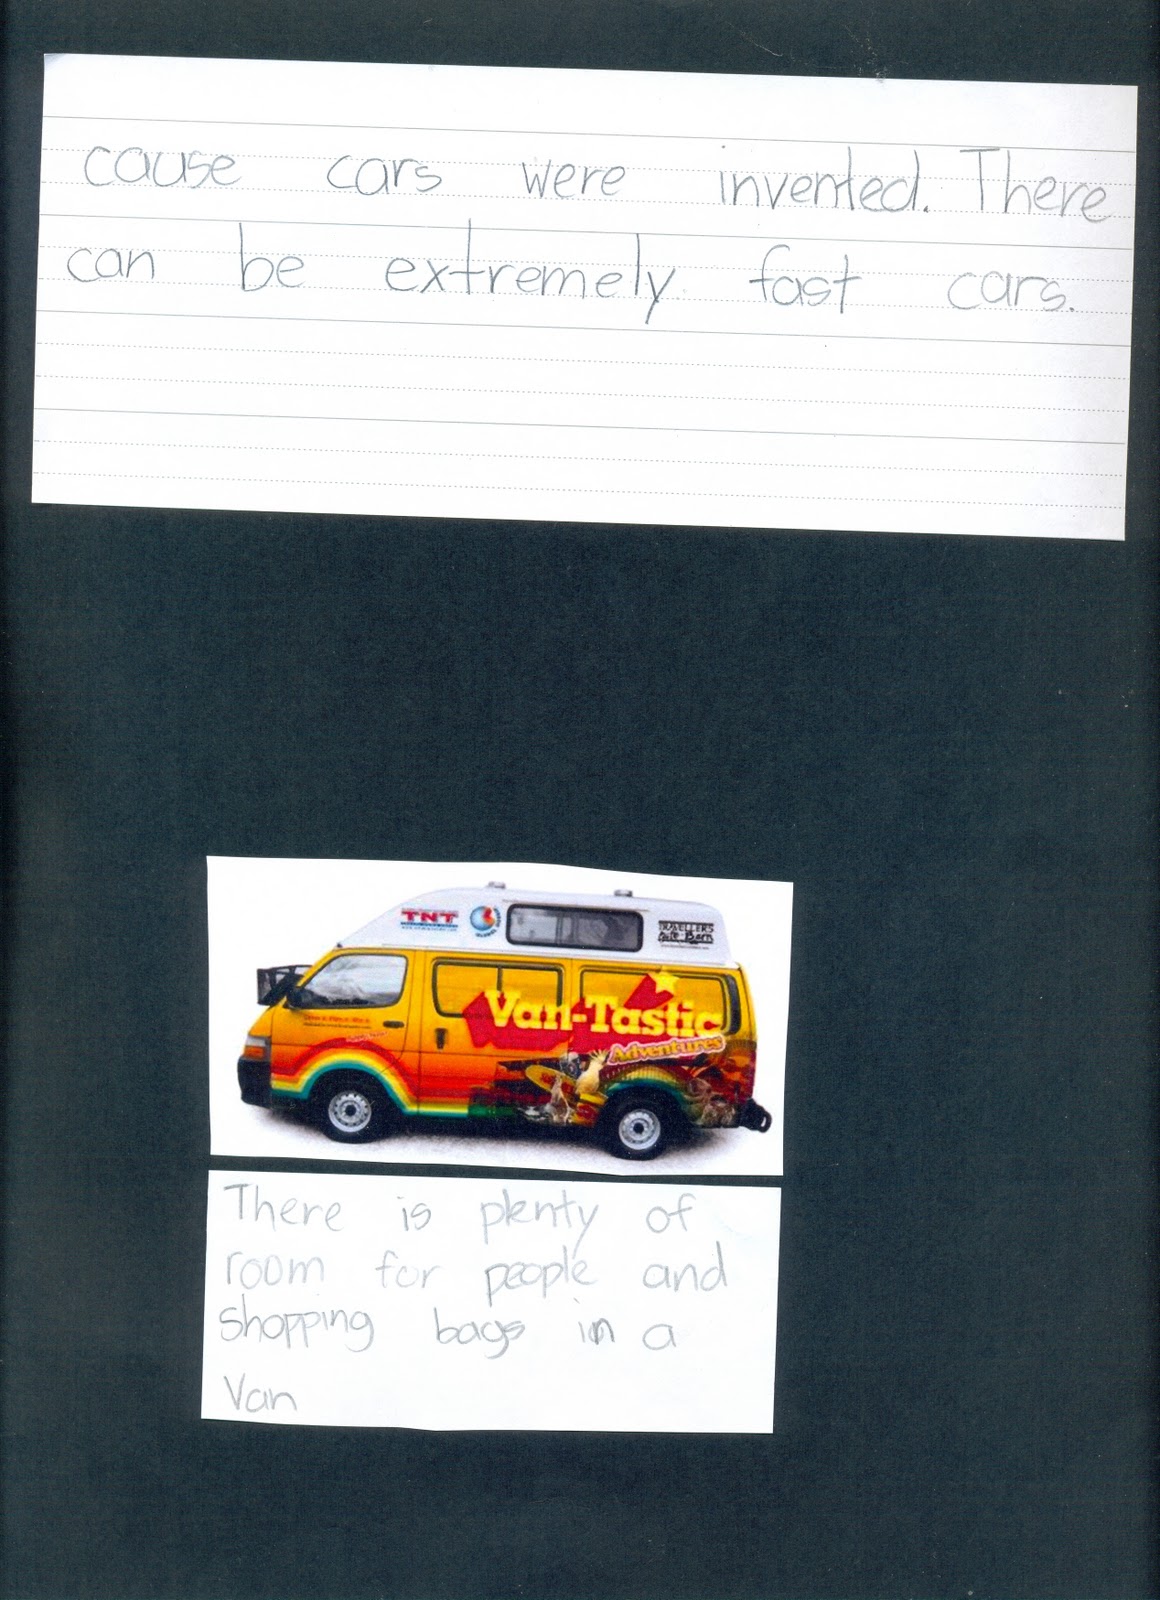 cause cars were invented. There
can be extremely fast cars.
TNT
TRAVELLERS
Auto Barn
Van-Tastic
Adventures
There is plenty of
room for people and
shopping bags in a
Van